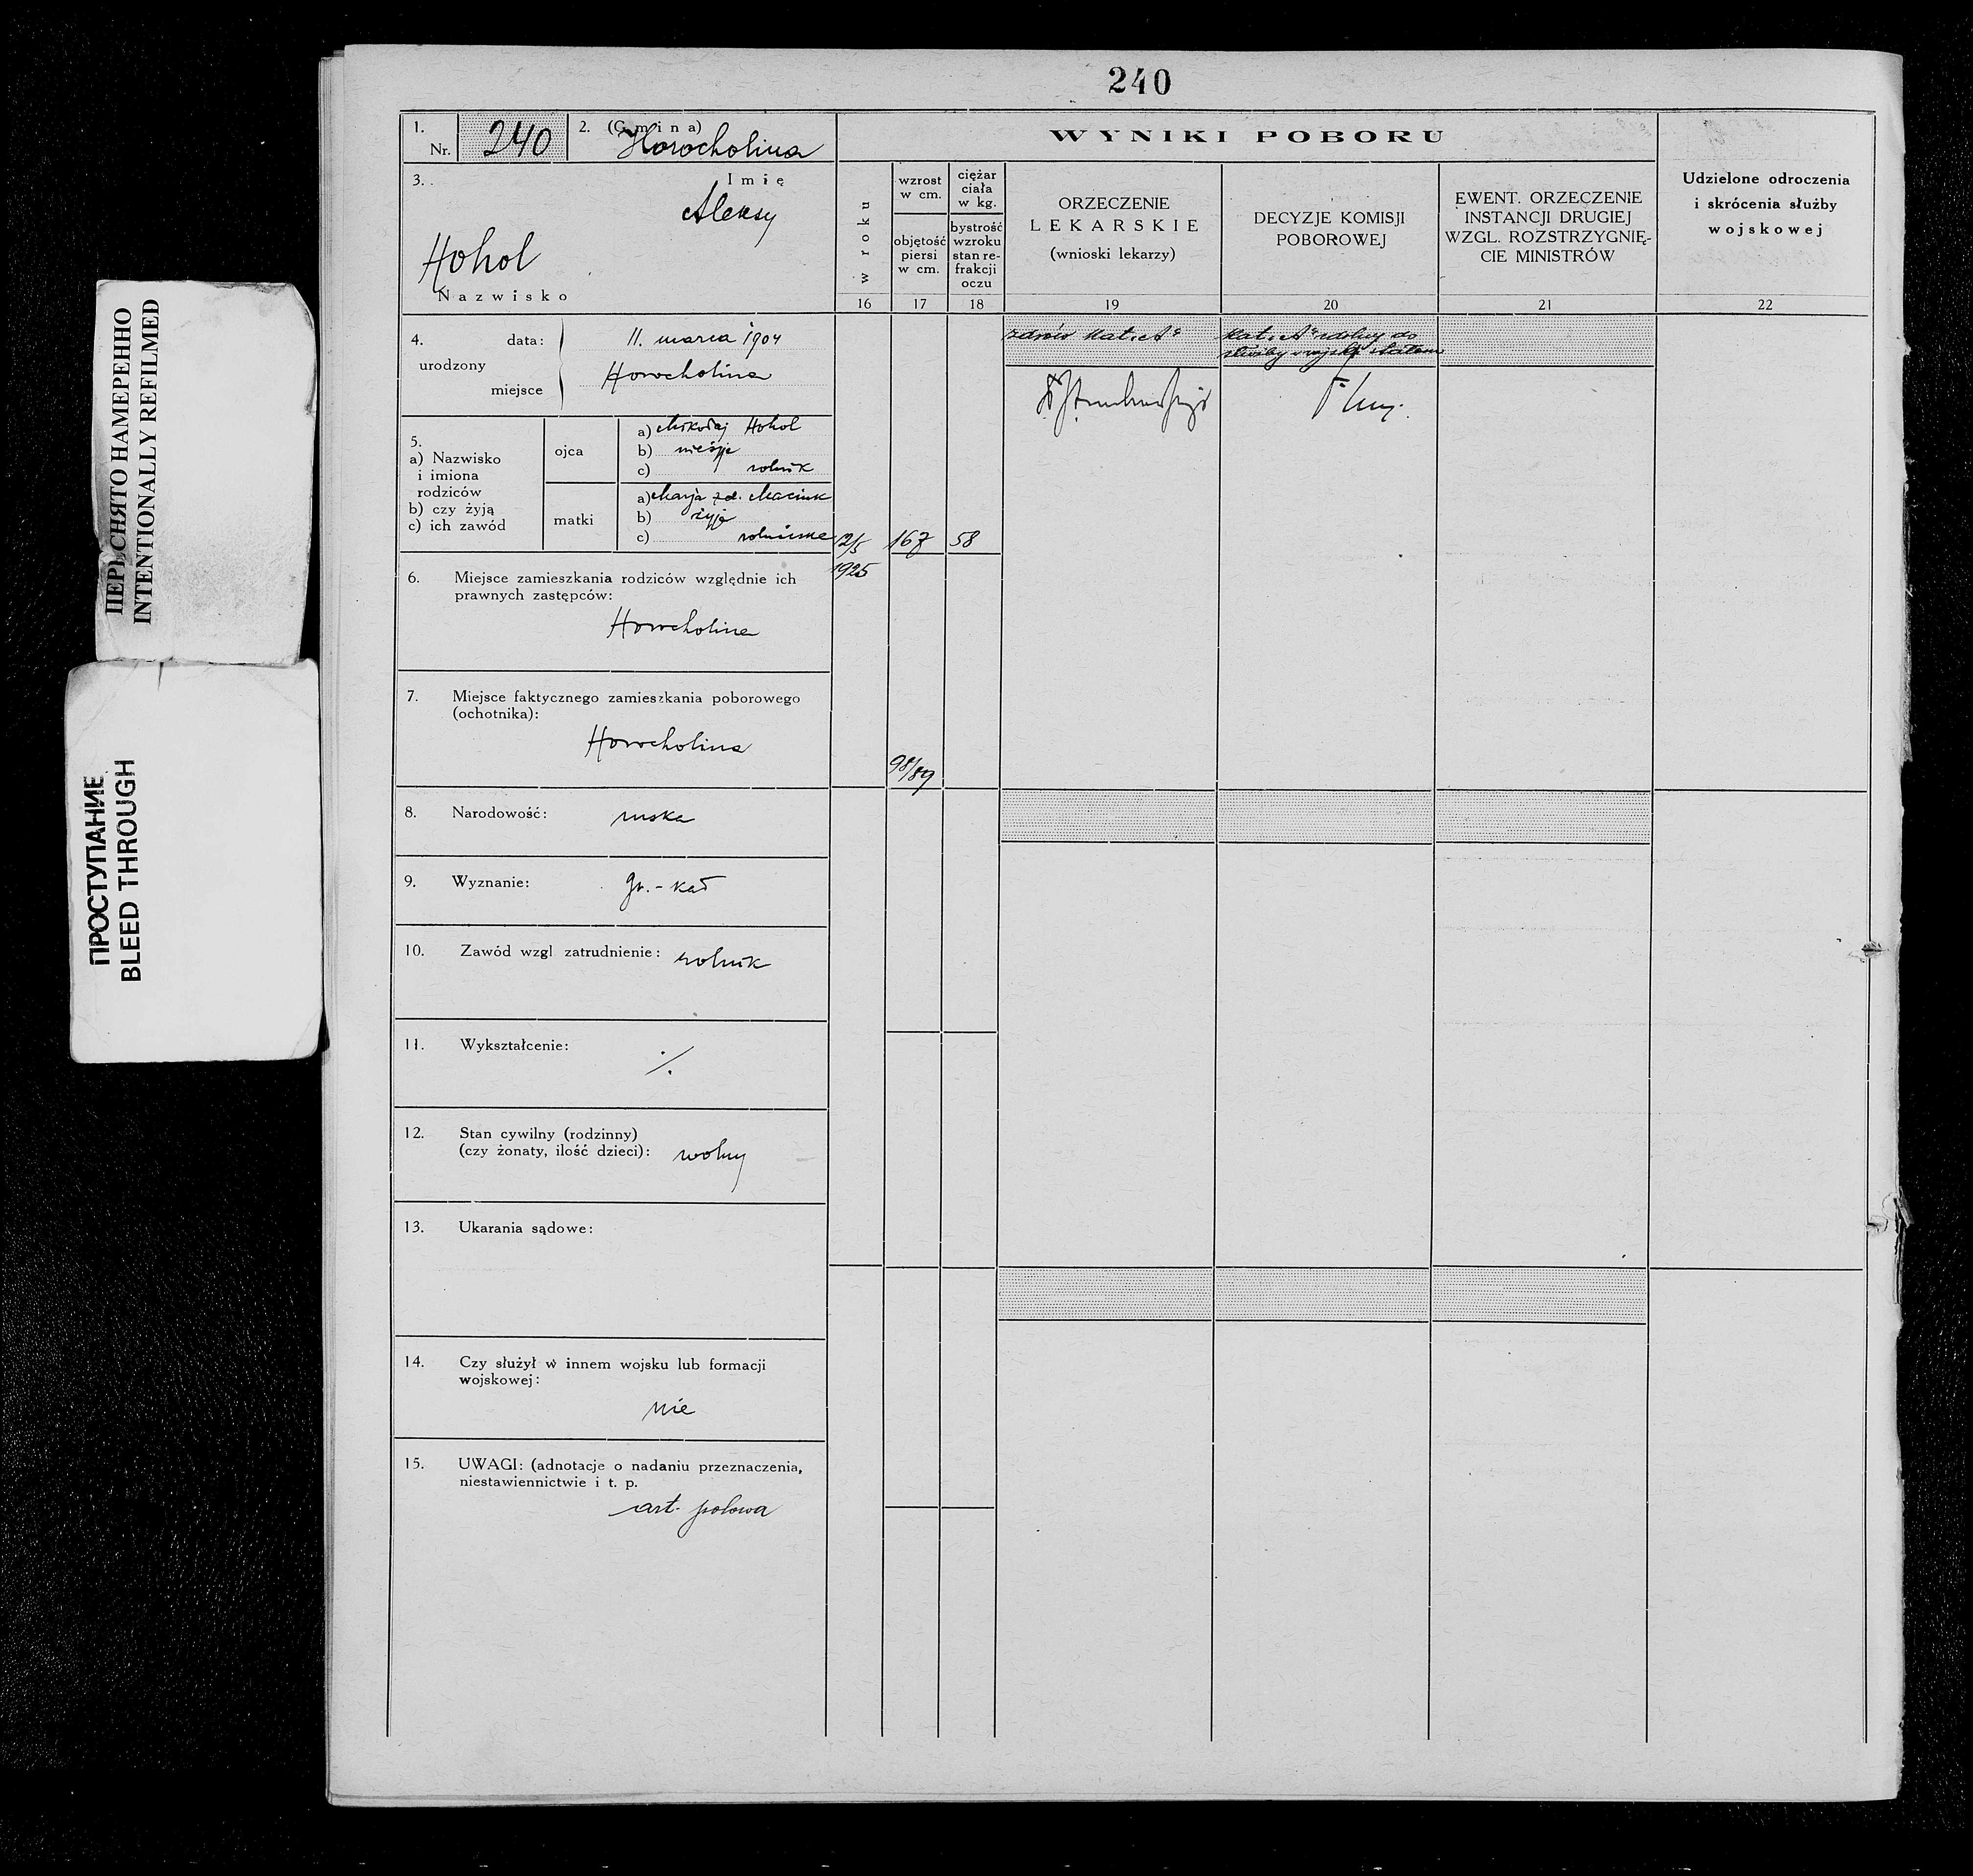 240
1.
Nr. 240
2. (Gmina)
Horocholina
3.
Imię
Aleksy
Hohol
Nazwisko
4.
urodzony
data: 11. marca 1904
miejsce Horocholina
5.
a) Nazwisko
i imiona
rodziców
b) czy żyją
c) ich zawód
ojca
a) Mikołaj Hohol
b) nieżyje
c) rolnik
matki
a) Marja zd. Maciuk
b) żyje
c)
6. Miejsce zamieszkania rodziców względnie ich
prawnych zastępców:
Horocholina
7. Miejsce faktycznego zamieszkania poborowego
(ochotnika):
Horocholina
8. Narodowość: ruska
9. Wyznanie: gr.-kat
10. Zawód wzgl zatrudnienie: rolnik
11. Wykształcenie:
./.
12. Stan cywilny (rodzinny)
(czy żonaty, ilość dzieci): wolny
13. Ukarania sądowe:
14. Czy służył w innem wojsku lub formacji
wojskowej:
nie
15. UWAGI: (adnotacje o nadaniu przeznaczenia,
niestawiennictwie i t. p.
art. polowa
WYNIKI POBORU
w roku
16
wzrost
w cm.
objętość
piersi
w cm.
17
ciężar
ciała
w kg.
bystrość
wzroku
stan re-
frakcji
oczu
18
ORZECZENIE
LEKARSKIE
(wnioski lekarzy)
19
DECYZJE KOMISJI
POBOROWEJ
20
EWENT. ORZECZENIE
INSTANCJI DRUGIEJ
WZGL. ROZSTRZYGNIĘ-
CIE MINISTRÓW
21
Udzielone odroczenia
i skrócenia służby
wojskowej
22
12/5
1925
167
58
98/89
zdrów kat. „A"
kat. „A" zdolny do
służby wojsk.
ПЕРЕСНЯТО НАМЕРЕННО
INTENTIONALLY REFILMED
ПРОСТУПАНИЕ
BLEED THROUGH